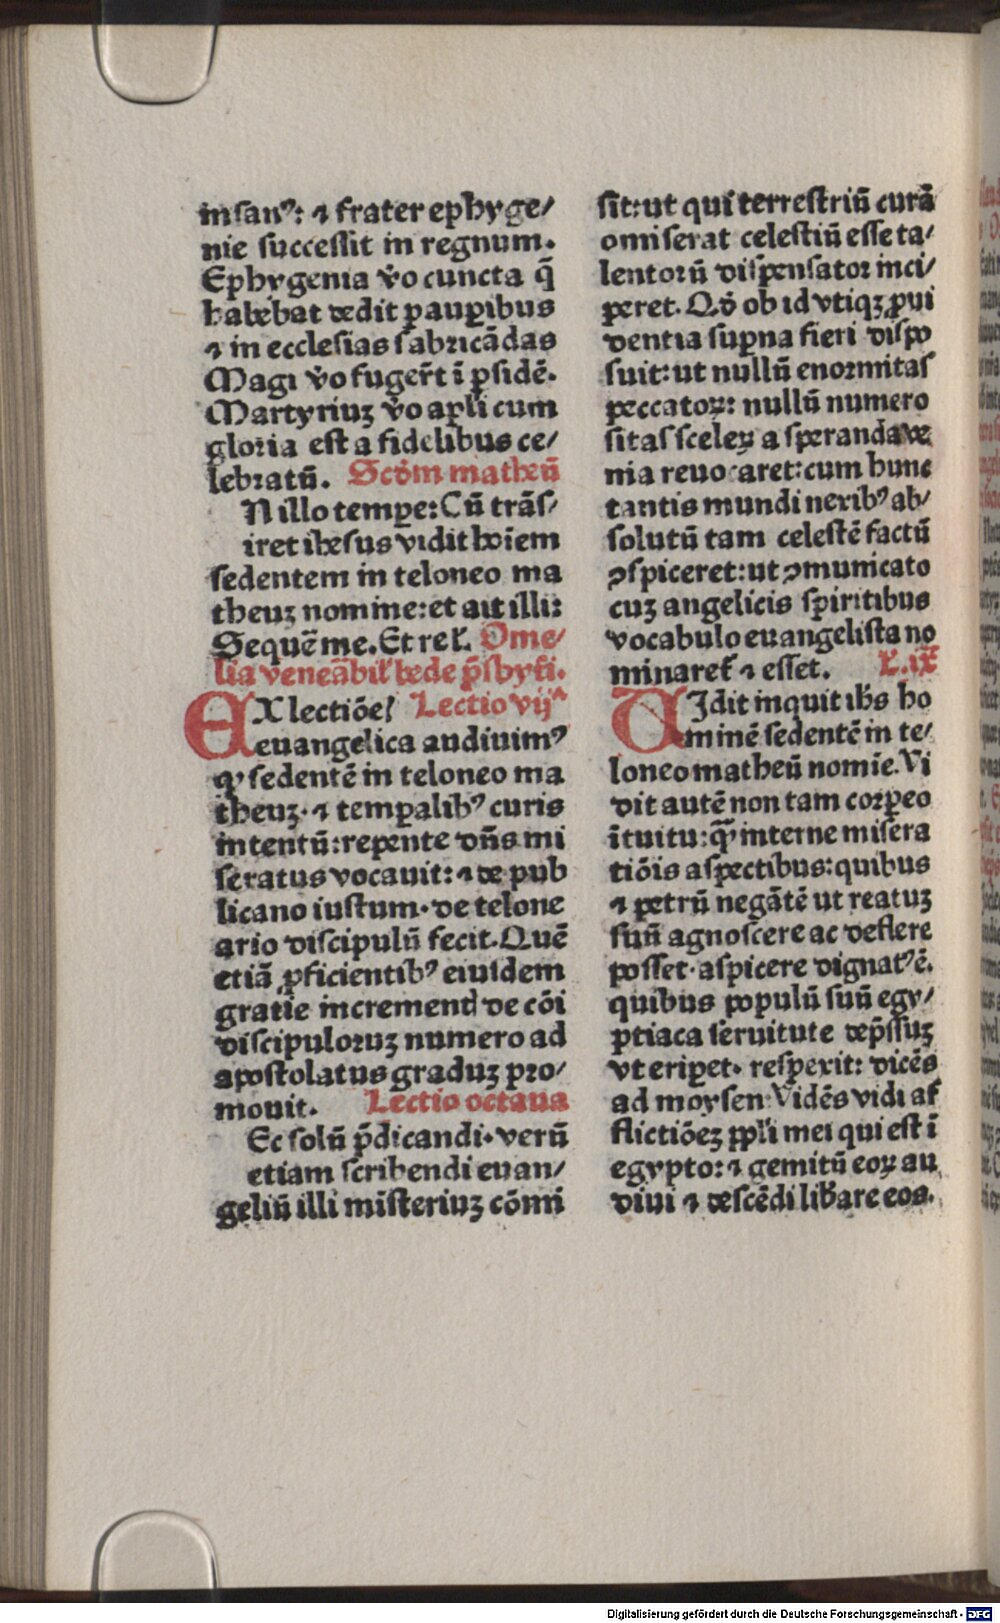 insanꝰ: ⁊ frater ephyge/
nie successit in regnum.
Ephygenia v̉o cuncta q̄
habebat dedit pauꝑibus
⁊ in ecclesias fabricādas
Magi v̉o fuger̄t ī ꝑsidē.
Martyriuꝫ v̉o apl̄i cum
gloria est a fidelibus ce/
lebratū. Scd̓m matheū
N illo tempe: Cū trās/
iret ihesus vidit hoīem
sedentem in teloneo ma
theuꝫ nomine: et ait illi:
Sequē me. Et rel̓. Ome/
lia veneābil̓ bede p̄sbyt̓i.
EX lectiōe Lectio vijᵃ
euangelica audiuimꝰ
qꝫ sedentē in teloneo ma
theuꝫ. ⁊ temꝑalibꝰ curis
intentū: repente dn̄s mi
seratus vocauit: ⁊ de pub
licano iustum. de telone
ario discipulū fecit. Quē
etiā ꝓficientibꝰ eiusdem
gratie incremen de cōi
discipuloruꝫ numero ad
apostolatus graduꝫ pro/
mouit. Lectio octaua
Ec solū p̄dicandi. verū
etiam scribendi euan/
geliū illi misteriuꝫ cōmi
sit: ut qui terrestriū curā
omiserat celestiū esse ta/
lentorū dispensator inci/
peret. Qd̓ ob id vtiqꝫ ꝓui
dentia suꝑna fieri dispo
suit: ut nullū enormitas
peccatoꝝ: nullū numero
sitas sceleꝝ a speranda ve
nia reuocaret: cum hunc
tantis mundi nexibꝰ ab/
solutū tam celestē factū
ꝯspiceret: ut ꝯmunicato
cuꝫ angelicis spiritibus
vocabulo euangelista no
minaret̓ ⁊ esset. L̓. ix̄
VIdit inquit ih̄s ho
minē sedentē in te/
loneo matheū nomīe. Vi
dit autē non tam corꝑeo
ītuitu: qꝫ̄ interne misera
tiōis aspectibus: quibus
⁊ petrū negātē ut reatuꝫ
suū agnoscere ac deflere
posset. aspicere dignatꝰ ē.
quibus populū suū egy/
ptiaca seruitute dep̄ssuꝫ
vt eriꝑet. respexit: dicēs
ad moysen: Vidēs vidi af
flictiōeꝫ ppl̓i mei qui est ī
egypto: ⁊ gemitū eoꝝ au
diui ⁊ descēdi lib̓are eos.
Digitalisierung gefördert durch die Deutsche Forschungsgemeinschaft - DFG